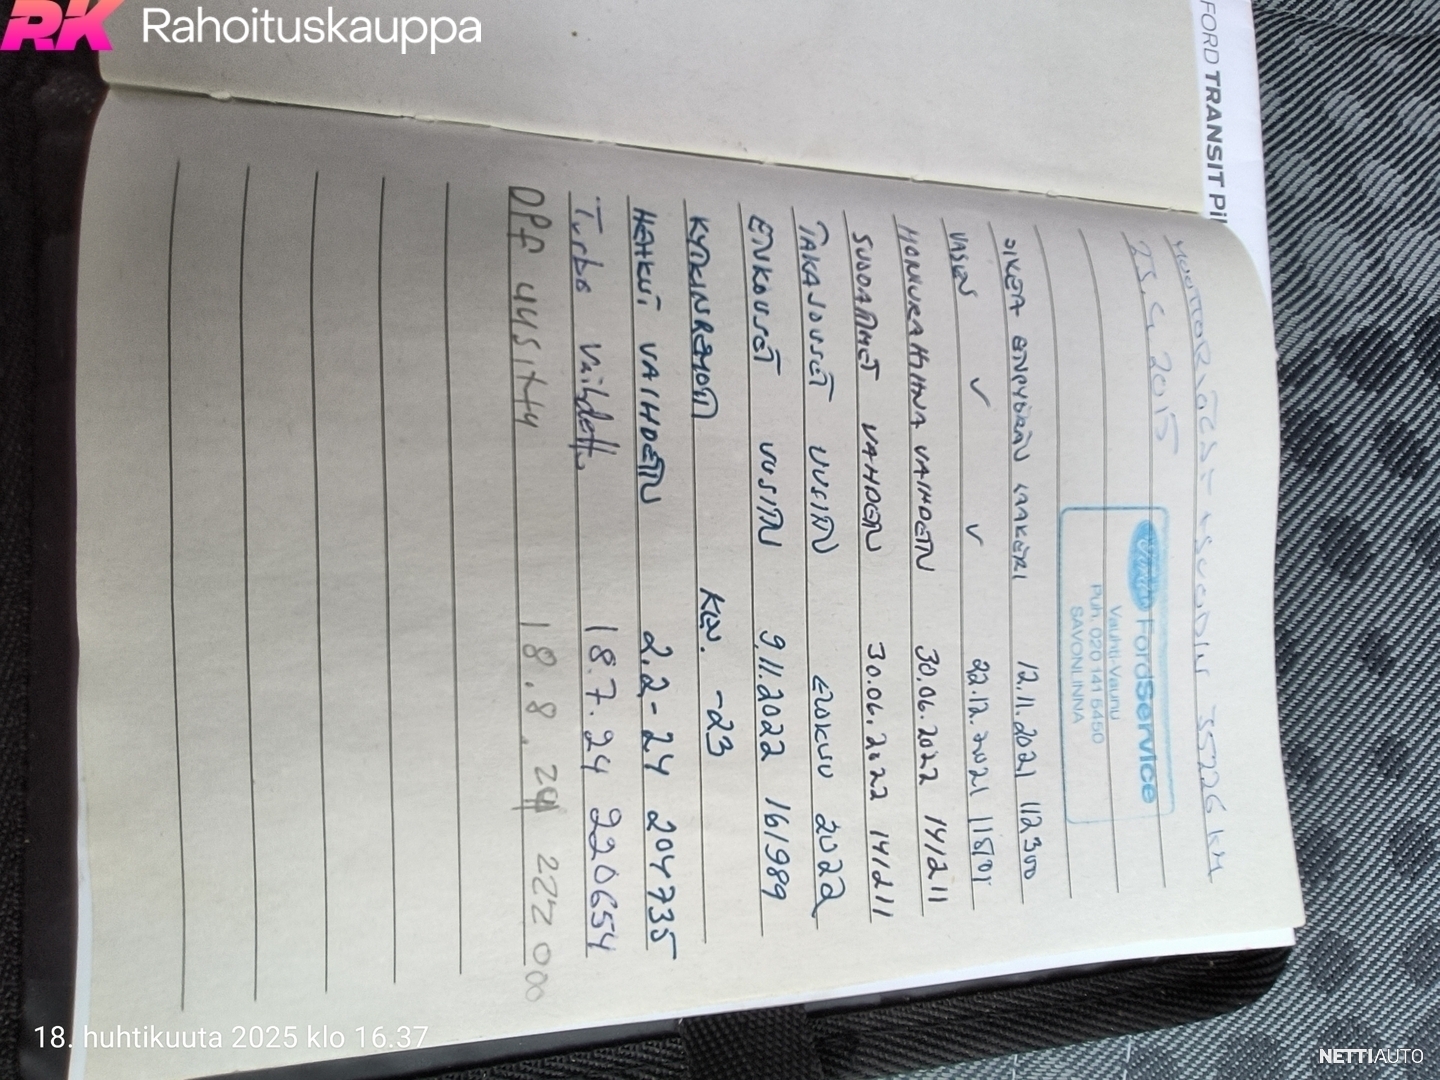 RK Rahoituskauppa
FORD TRANSIT Pi
35226 KM
23.4.2015
Ford FordService
Vauhti-Vaunu
Puh. 020 141 5450
SAVONLINNA
OIKEA LAAKERI 12.11.2021 112300
VASEN ✓ ✓ 22.12.2021
HONKURAHIHNA VAIHDETTU 30.06.2022 141211
SUODATTIMET VAIHDETTU 30.06.2022 141211
TAKAJOUSET UUSITTU ELOKUU 2022
ETUJOUSET UUSITTU 9.11.2022 161989
KYTKINREMONTTI -23
HEHKUT VAIHDETTU 2.2-24 204735
Turbo Vaihdettu 18.7.24 220654
DPF UUSITTU 18.8.24 222000
18. huhtikuuta 2025 klo 16.37
NETTIAUTO